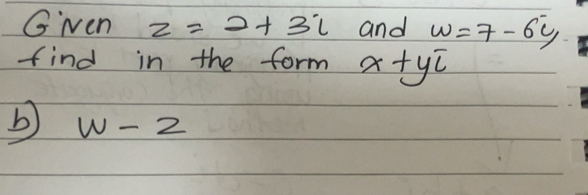 Given z = 2 + 3i and w = 7 - 6i,
find in the form x + yi
b) w - z